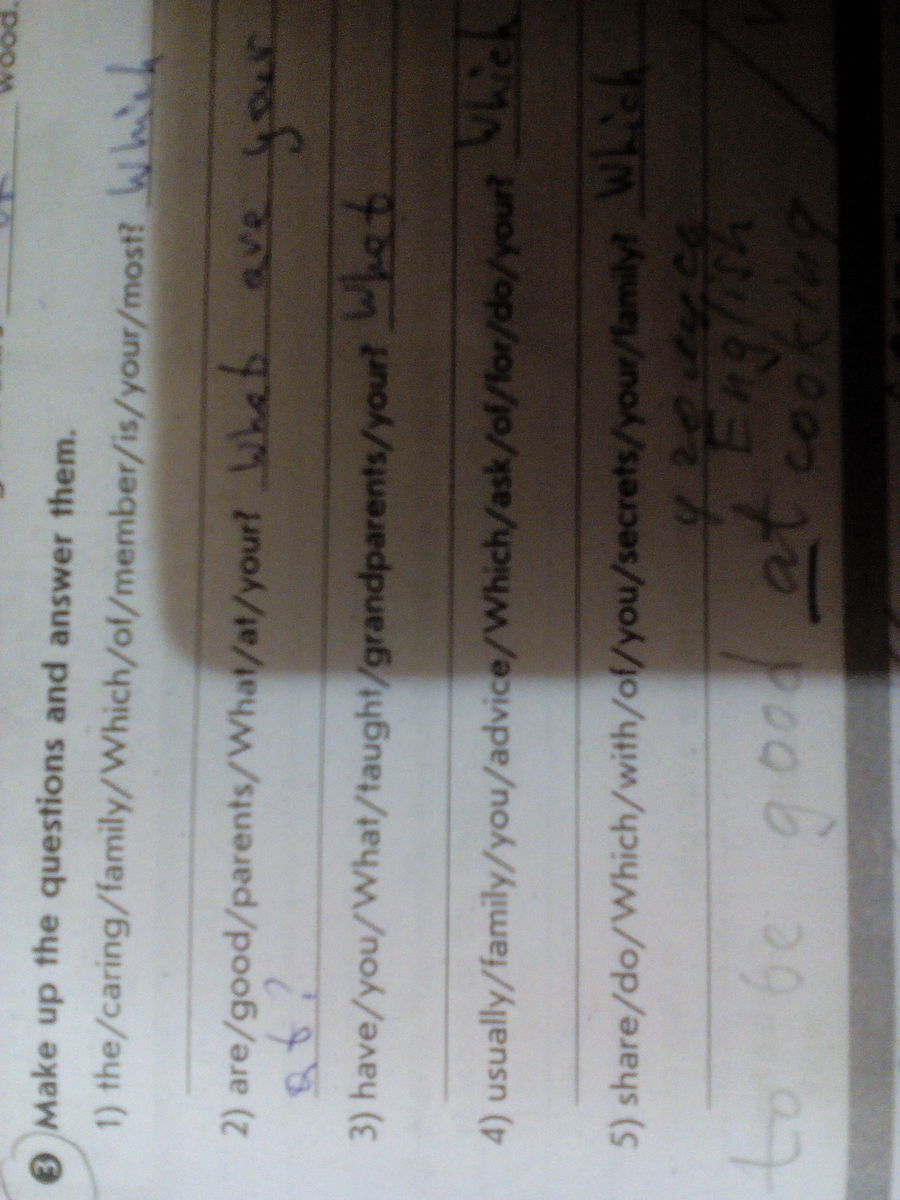 wood.
3 Make up the questions and answer them.
1) the/caring/family/Which/of/member/is/your/most? Which
2) are/good/parents/What/at/your? What are your
at?
3) have/you/What/taught/grandparents/your? What
4) usually/family/you/advice/Which/ask/of/for/do/your? Which
5) share/do/Which/with/of/you/secrets/your/family? Which
English
to be good at cooking